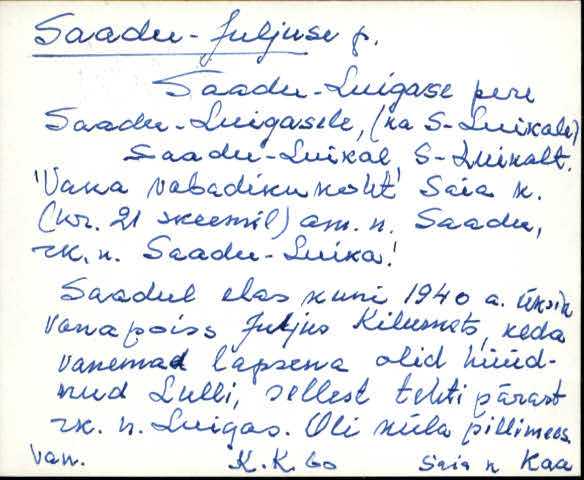 Saadu-Juljuse p.
Saadu-Luigase pere
Saadu-Luigasele, (ka S-Luikale)
Saadu-Luikal, S-Luikalt.
'Vana vabadikukoht Saia k.
(kr. 21 skeemil) am. n. Saadu,
rk. n. Saadu-Luika.'
Saadul elas kuni 1940 a. üksik
vanapoiss Juljus Kilumets, keda
vanemad lapsena olid hüüd-
nud Lulli, sellest tehti pärast
rk. n. Luigas. Oli küla pillimees.
Van. K. K. 60 Saia k Kaa